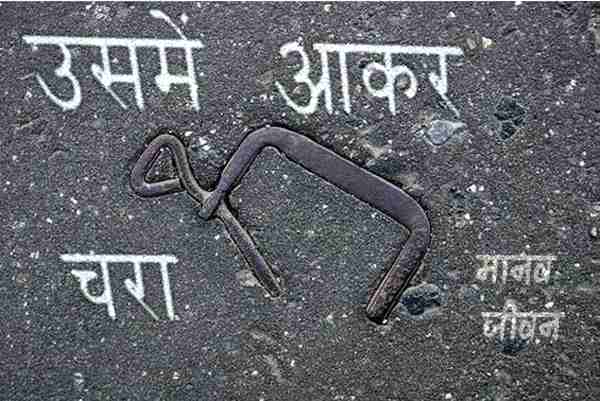 उसमें आकर
चरा
मानव
जीवन